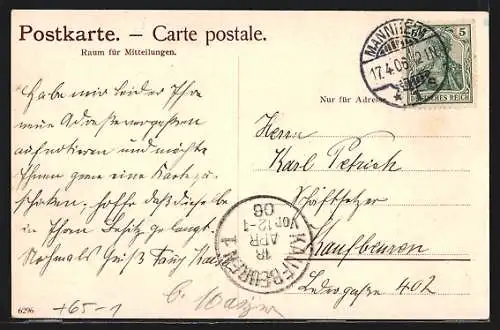 Postkarte. – Carte postale.
Raum für Mitteilungen.
Nur für Adresse
MANNHEIM
17.4.06
5
DEUTSCHES REICH
Habe mir leider Ihre
neue Adresse vergessen
aufnotieren und möchte
Ihnen gerne eine Karte
schicken, hoffe daß diese
in Ihren Besitz gelangt.
Nochmals Gruß
Herrn
Karl Petrich
Schriftsetzer
Kaufbeuren
Ledergaße 402
KAUFBEUREN 1
18
APR
Vor 12-1
06
6296
+65-1